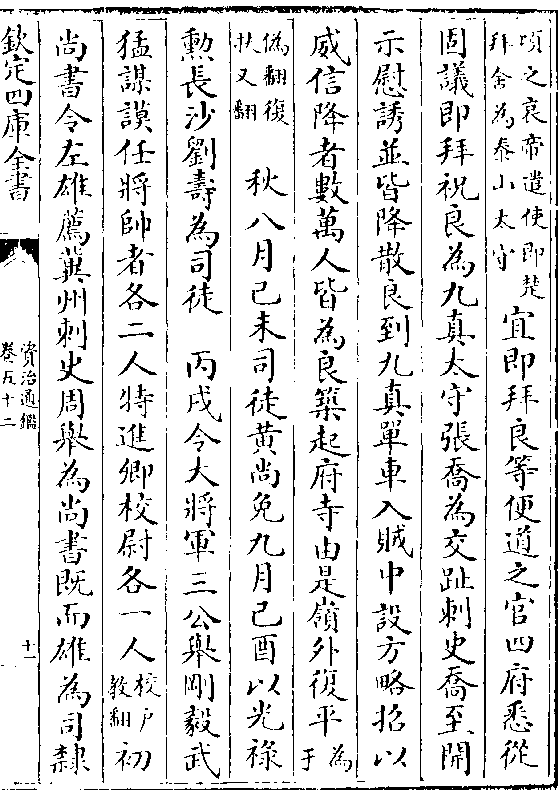 項之哀帝遣使即楚
拜舍為泰山太守
宜即拜良等便道之官四府悉從
固議即拜祝良為九真太守張喬為交趾刺史喬至開
示慰誘並皆降散良到九真單車入賊中設方略招以
威信降者數萬人皆為良築起府寺由是嶺外復平
為
于
偽翻復
扶又翻
秋八月己未司徒黄尚免九月己酉以光禄
勲長沙劉壽為司徒　丙戌令大將軍三公舉剛毅武
猛謀謨任將帥者各二人特進卿校尉各一人
校户
教翻
初
尚書令左雄薦冀州刺史周舉為尚書既而雄為司隸
欽定四庫全書
資治通鑑
卷五十二
十一